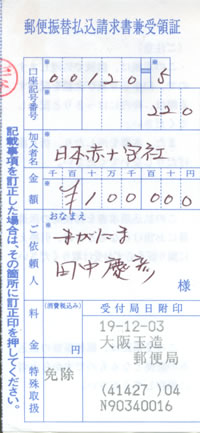 郵便振替払込請求書兼受領証
口座記号番号 00120=5
220
加入者名 日本赤十字社
金額 千百十万千百十円
¥100000
ご依頼人 おなまえ
まがたま
田中慶彦
様
料金 (消費税込み) 円
特殊取扱 免除
受付局日附印
19-12-03
大阪玉造
郵便局
(41427 )04
N90340016
記載事項を訂正した場合は、その箇所に訂正印を押してください。